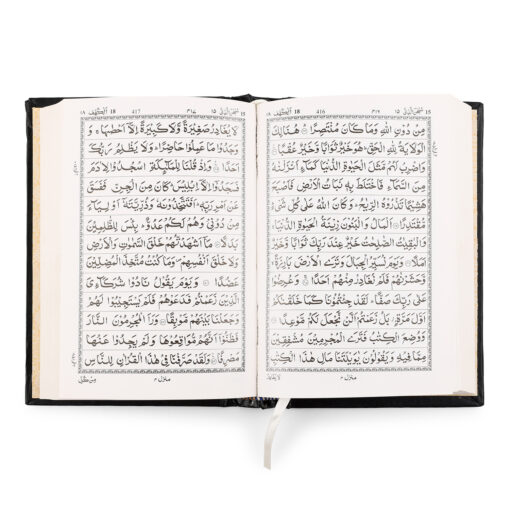 سبحن الذی ۱۵ 15 416 الکهف 18 ۱۸
مِنْ دُوْنِ اللّٰهِ وَمَا كَانَ مُنْتَصِرًا ۝ هُنَالِكَ
الْوَلَايَةُ لِلّٰهِ الْحَقِّ هُوَ خَيْرٌ ثَوَابًا وَّخَيْرٌ عُقْبًا ۝
وَاضْرِبْ لَهُمْ مَّثَلَ الْحَيٰوةِ الدُّنْيَا كَمَآءٍ اَنْزَلْنٰهُ
مِنَ السَّمَآءِ فَاخْتَلَطَ بِهٖ نَبَاتُ الْاَرْضِ فَاَصْبَحَ
هَشِيْمًا تَذْرُوْهُ الرِّيٰحُ وَكَانَ اللّٰهُ عَلٰى كُلِّ شَيْءٍ
مُّقْتَدِرًا ۝ اَلْمَالُ وَالْبَنُوْنَ زِيْنَةُ الْحَيٰوةِ الدُّنْيَا
وَالْبٰقِيٰتُ الصّٰلِحٰتُ خَيْرٌ عِنْدَ رَبِّكَ ثَوَابًا وَّخَيْرٌ
اَمَلًا ۝ وَيَوْمَ نُسَيِّرُ الْجِبَالَ وَتَرَى الْاَرْضَ بَارِزَةً
وَّحَشَرْنٰهُمْ فَلَمْ نُغَادِرْ مِنْهُمْ اَحَدًا ۝ وَعُرِضُوْا
عَلٰى رَبِّكَ صَفًّا لَقَدْ جِئْتُمُوْنَا كَمَا خَلَقْنٰكُمْ
اَوَّلَ مَرَّةٍ بَلْ زَعَمْتُمْ اَلَّنْ نَّجْعَلَ لَكُمْ مَّوْعِدًا ۝
وَوُضِعَ الْكِتٰبُ فَتَرَى الْمُجْرِمِيْنَ مُشْفِقِيْنَ
مِمَّا فِيْهِ وَيَقُوْلُوْنَ يٰوَيْلَتَنَا مَالِ هٰذَا الْكِتٰبِ
منزل ۴
لا يغادر
15 417 الکهف 18 ۱۸
لَا يُغَادِرُ صَغِيْرَةً وَّلَا كَبِيْرَةً اِلَّآ اَحْصٰىهَا وَ
وَجَدُوْا مَا عَمِلُوْا حَاضِرًا وَلَا يَظْلِمُ رَبُّكَ
اَحَدًا ۝ وَاِذْ قُلْنَا لِلْمَلٰٓئِكَةِ اسْجُدُوْا لِاٰدَمَ
فَسَجَدُوْٓا اِلَّآ اِبْلِيْسَ كَانَ مِنَ الْجِنِّ فَفَسَقَ
عَنْ اَمْرِ رَبِّهٖ اَفَتَتَّخِذُوْنَهٗ وَذُرِّيَّتَهٗٓ اَوْلِيَآءَ
مِنْ دُوْنِيْ وَهُمْ لَكُمْ عَدُوٌّ بِئْسَ لِلظّٰلِمِيْنَ
بَدَلًا ۝ مَآ اَشْهَدْتُّهُمْ خَلْقَ السَّمٰوٰتِ وَالْاَرْضِ
وَلَا خَلْقَ اَنْفُسِهِمْ وَمَا كُنْتُ مُتَّخِذَ الْمُضِلِّيْنَ
عَضُدًا ۝ وَيَوْمَ يَقُوْلُ نَادُوْا شُرَكَآءِيَ
الَّذِيْنَ زَعَمْتُمْ فَدَعَوْهُمْ فَلَمْ يَسْتَجِيْبُوْا لَهُمْ
وَجَعَلْنَا بَيْنَهُمْ مَّوْبِقًا ۝ وَرَاَ الْمُجْرِمُوْنَ النَّارَ
فَظَنُّوْٓا اَنَّهُمْ مُّوَاقِعُوْهَا وَلَمْ يَجِدُوْا عَنْهَا
مَصْرِفًا ۝ وَلَقَدْ صَرَّفْنَا فِيْ هٰذَا الْقُرْاٰنِ لِلنَّاسِ
منزل ۴
من كل